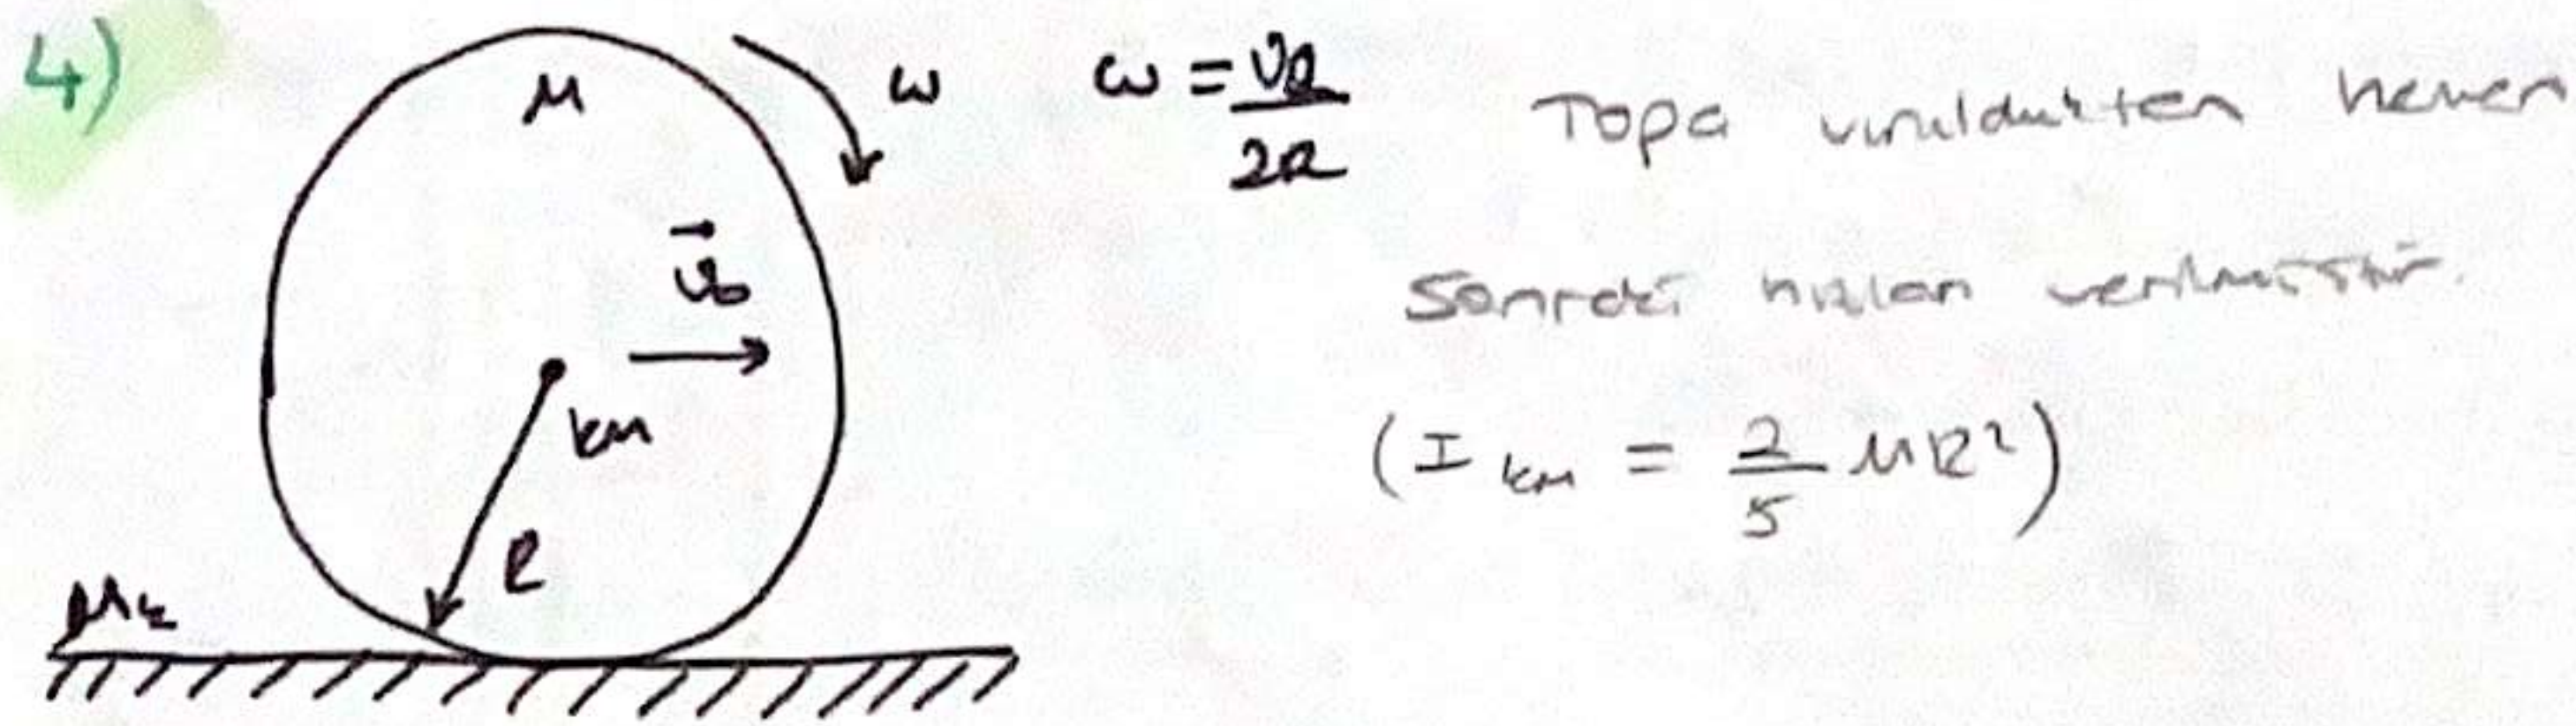 4)
M
ω
ω = v₀/2R
Topa vurulduktan hemen
v⃗₀
Sonraki hızları verilmiştir.
km
(I km = 2/5 MR²)
R
μk